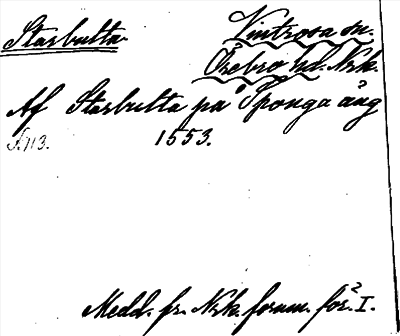 Starbulta. Vintrosa sn.
Örebro hd. Nrk.
Af Starbulta på Sponga äng
S. 113. 1553.
Medd. fr. Nrk. fornm. för. I.